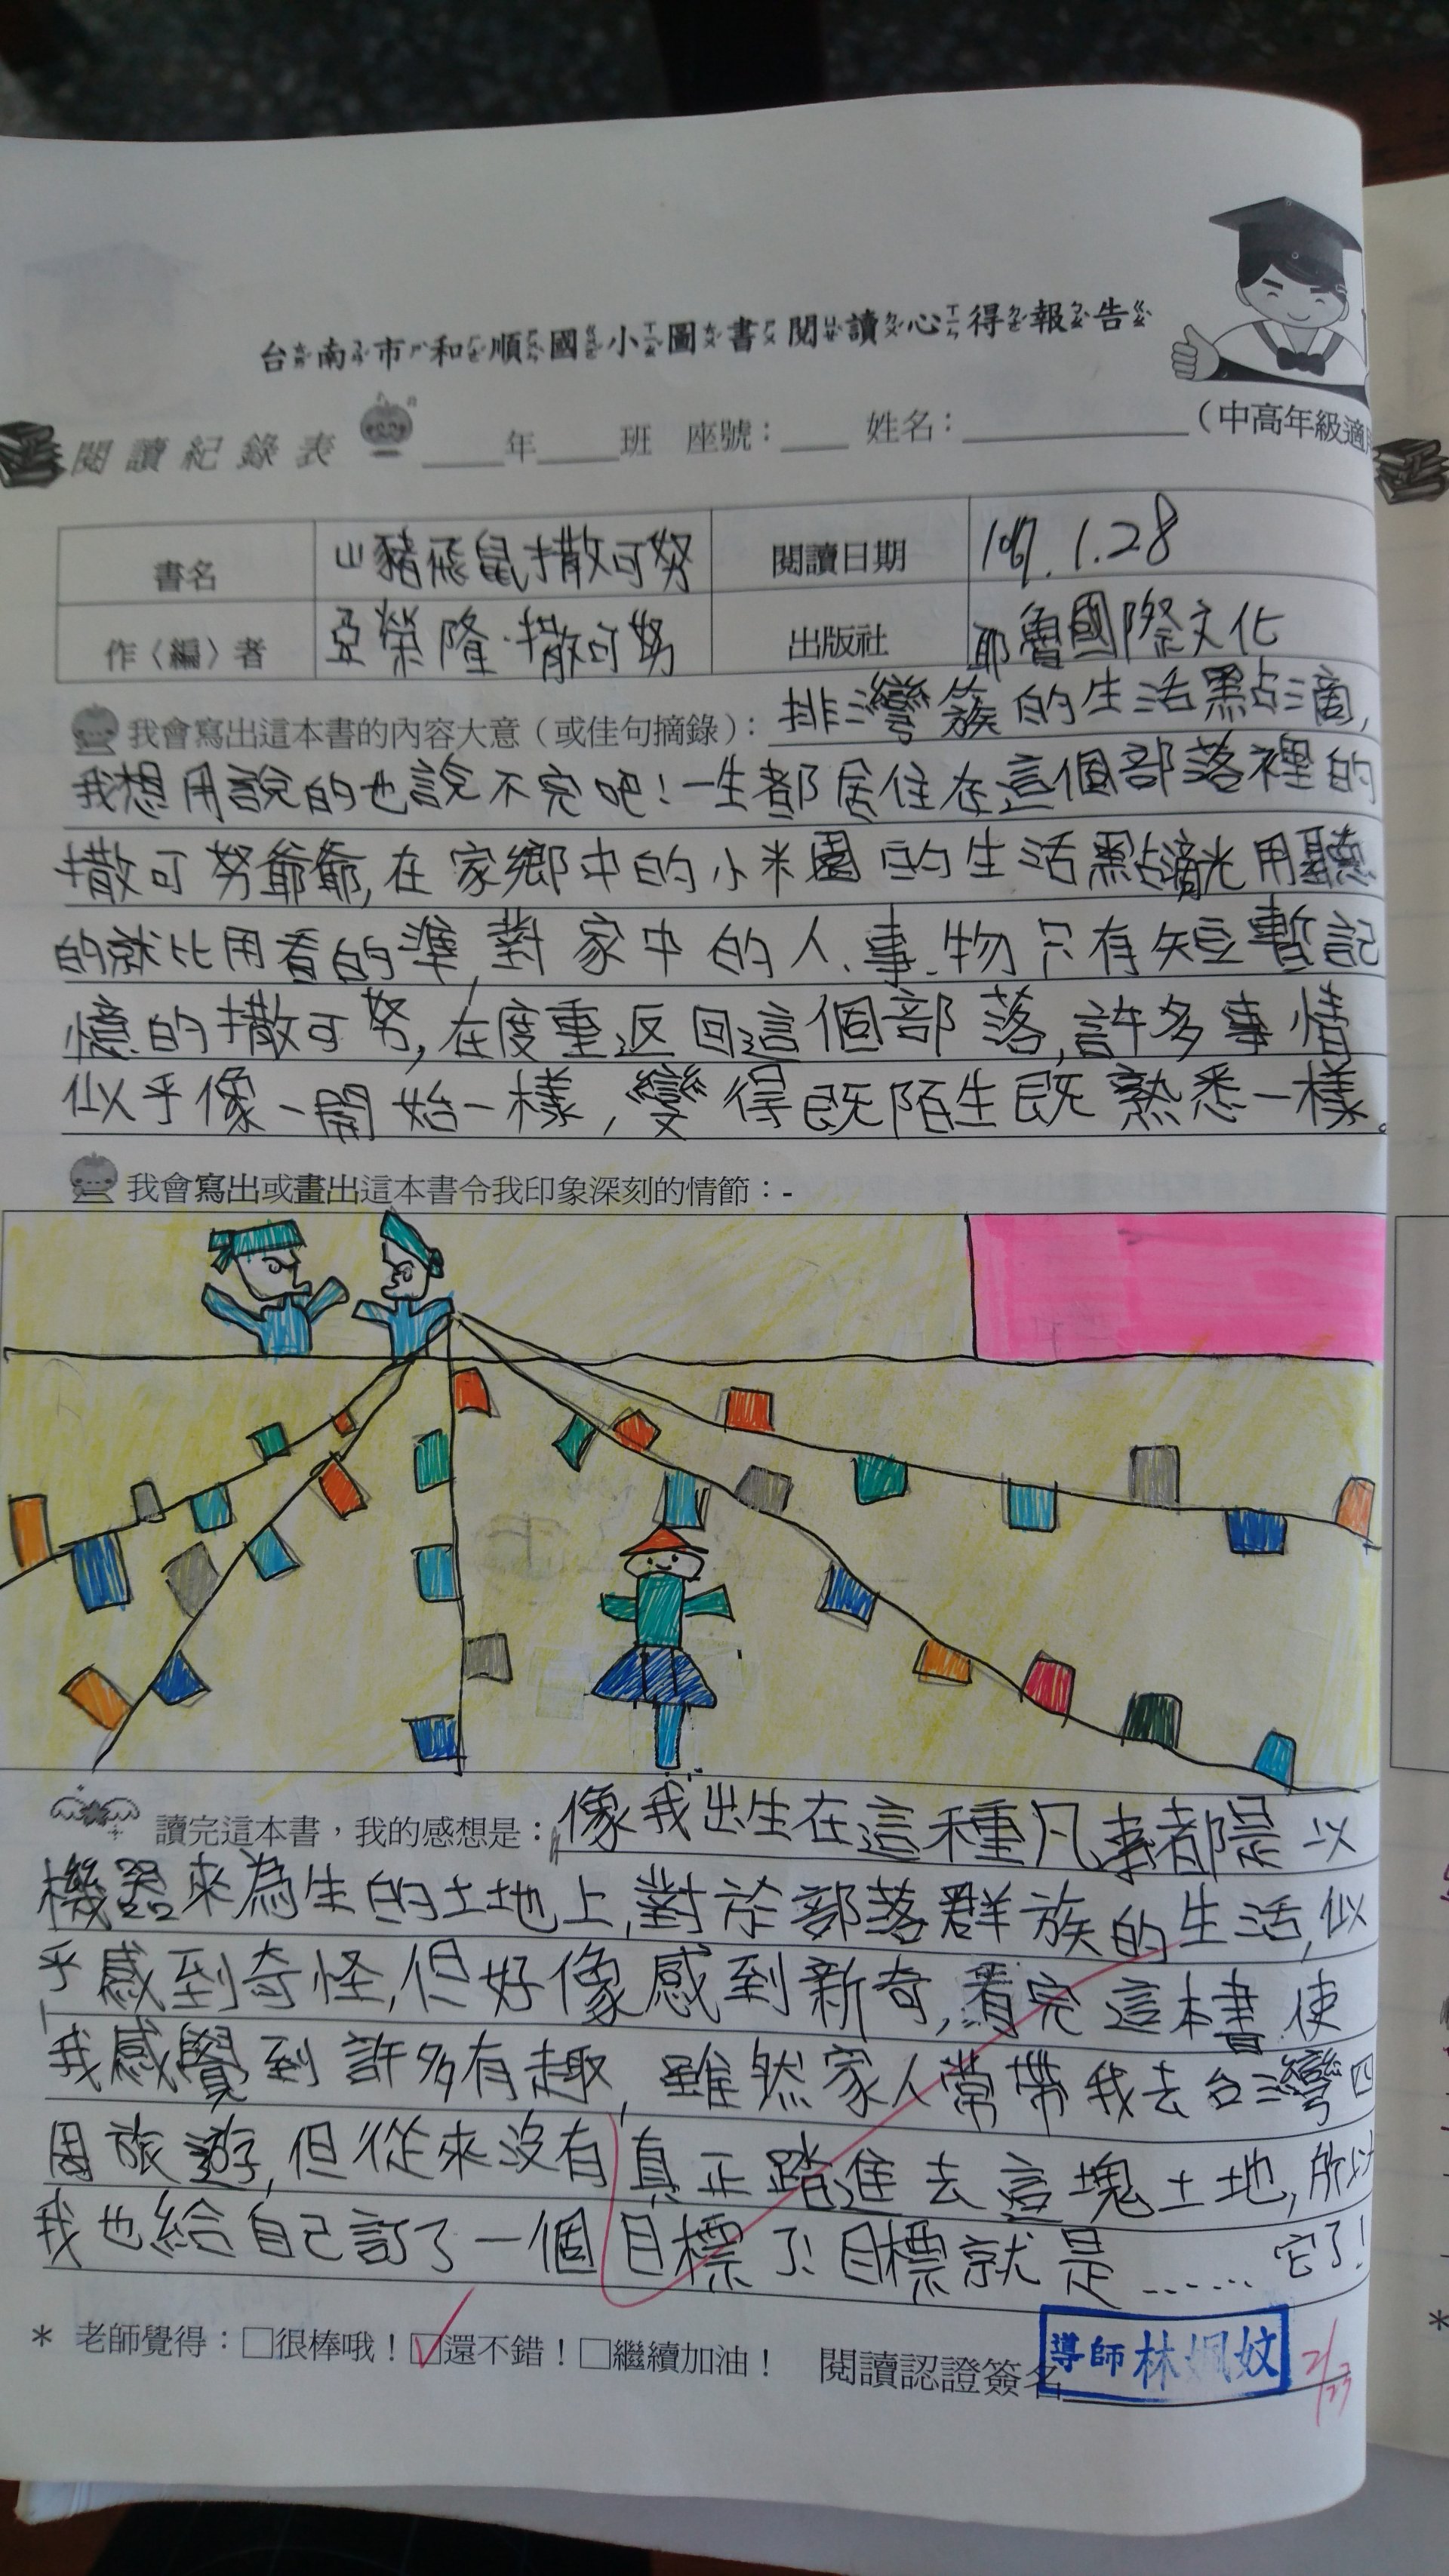 台南市和順國小圖書閱讀心得報告
閱讀紀錄表 ____年____班 座號：___ 姓名：__________（中高年級適
書名 山豬飛鼠撒可努 閱讀日期 107.1.28
作〈編〉者 亞榮隆·撒可努 出版社 耶魯國際文化
我會寫出這本書的內容大意（或佳句摘錄）：排灣簇的生活點滴,
我想用說的也說不完吧！一生都居住在這個部落裡的
撒可努爺爺,在家鄉中的小米園的生活點滴光用聽
的就比用看的準,對家中的人、事、物只有短暫記
憶的撒可努,在度重返回這個部落,許多事情
似乎像一開始一樣,變得既陌生既熟悉一樣。
我會寫出或畫出這本書令我印象深刻的情節：-
讀完這本書，我的感想是：像我出生在這種凡事都是以
機器來為生的土地上,對於部落群族的生活,似
乎感到奇怪,但好像感到新奇,看完這本書,使
我感覺到許多有趣,雖然家人常帶我去台灣四
周旅遊,但從來沒有真正踏進去這塊土地,所以
我也給自己訂了一個目標了!目標就是……它了!
* 老師覺得：□很棒哦！☑還不錯！□繼續加油！ 閱讀認證簽名 導師 林姵妏 2/23